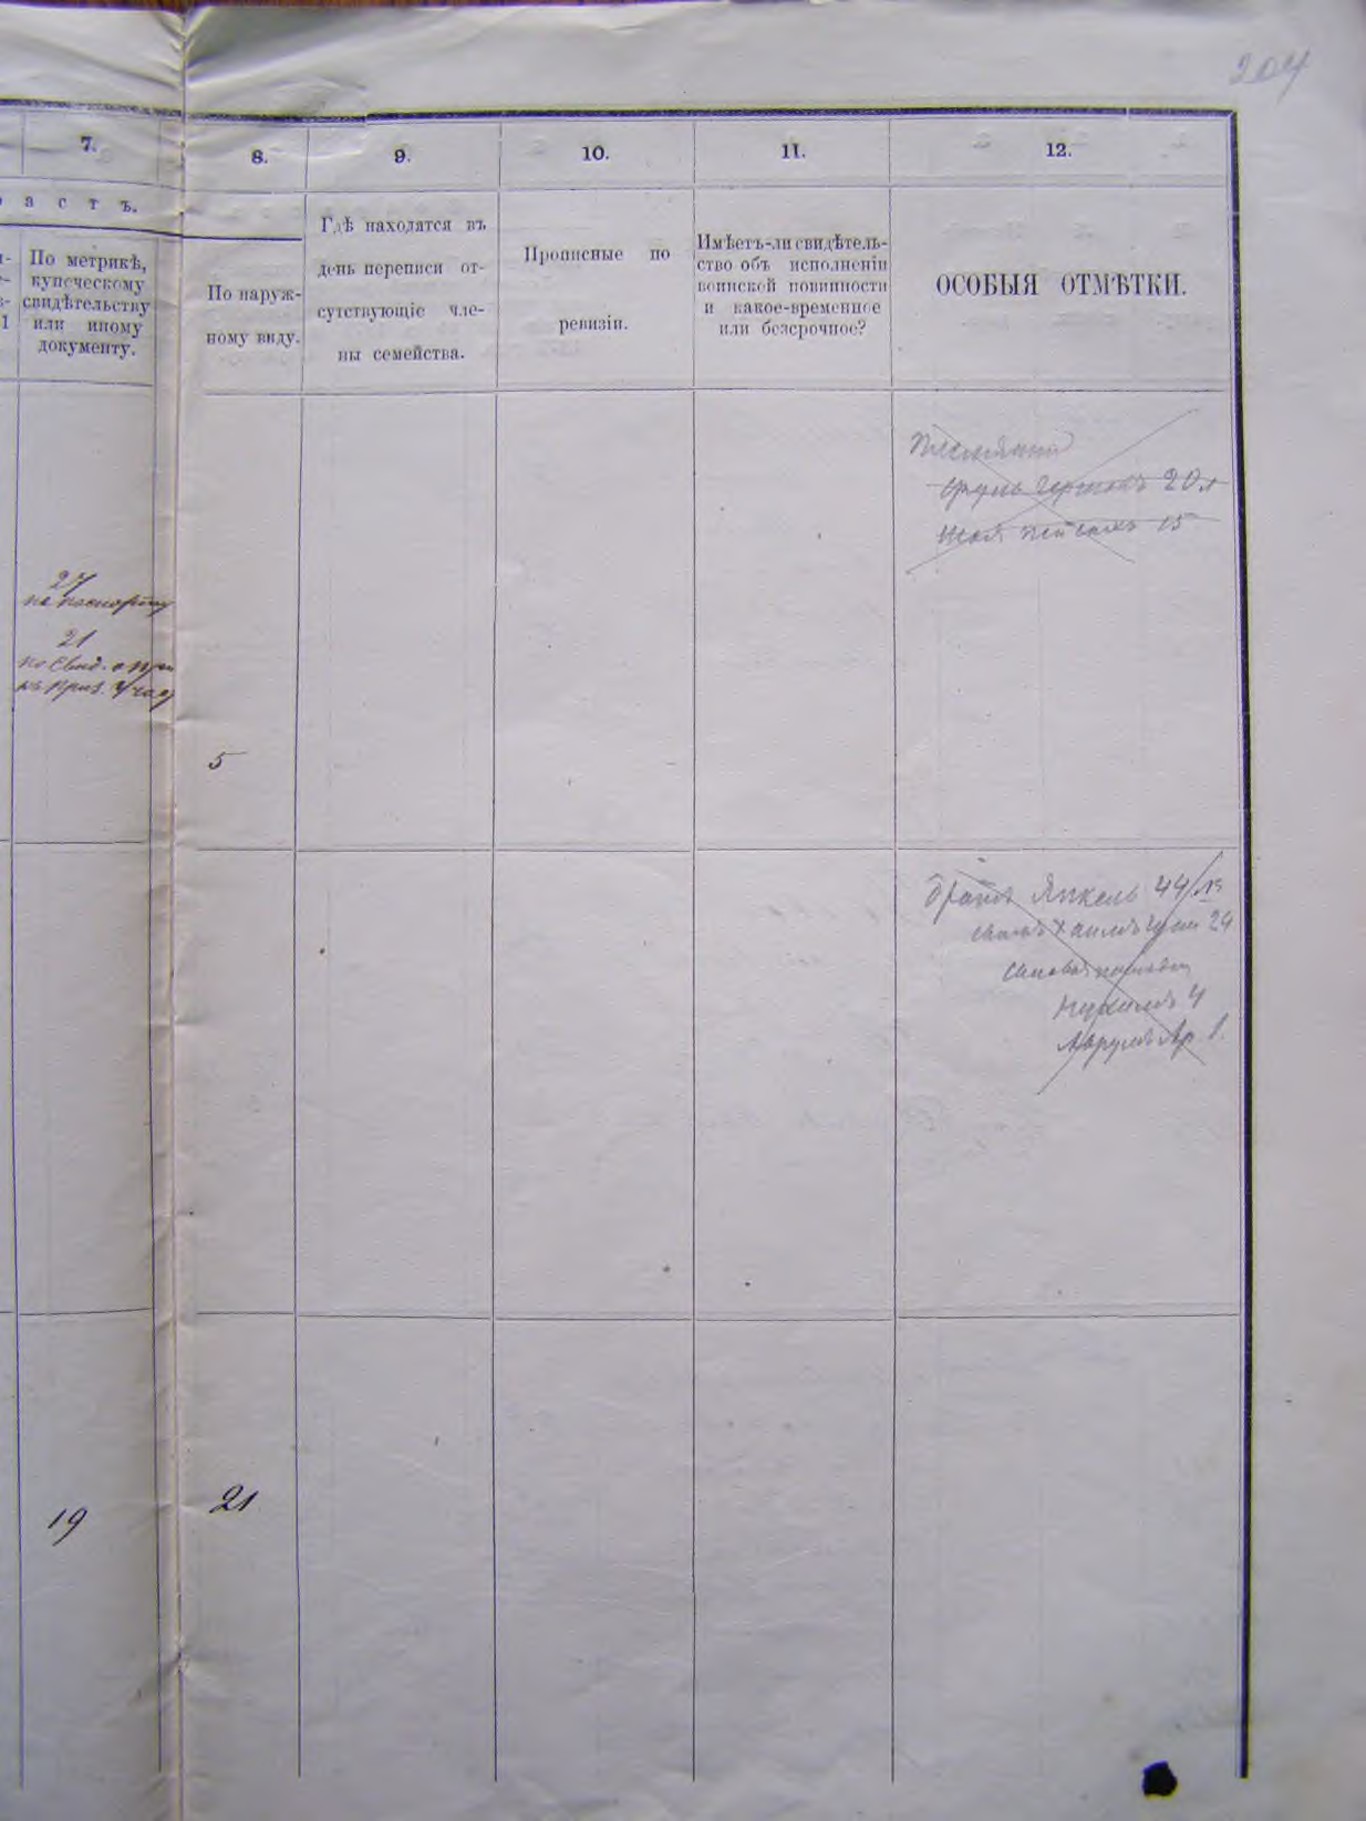 204
7.
8.
9.
10.
11.
12.
а с т ъ.
По метрикѣ,
купеческому
свидѣтельству
или иному
документу.
По наруж-
ному виду.
Гдѣ находятся въ
день переписи от-
сутствующіе чле-
ны семейства.
Прописные по
ревизіи.
Имѣетъ-ли свидѣтель-
ство объ исполненіи
воинской повинности
и какое-временное
или безсрочное?
ОСОБЫЯ ОТМѢТКИ.
Племянники
20 л
15
27
по паспорту
21
по Свид. о при
къ приз. учас
5
братъ Янкель 44 /
Хаимъ 24
сыновья
Нухимъ 4
1.
19
21